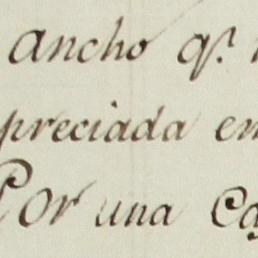 ancho q.r
preciada en
Por una Ca